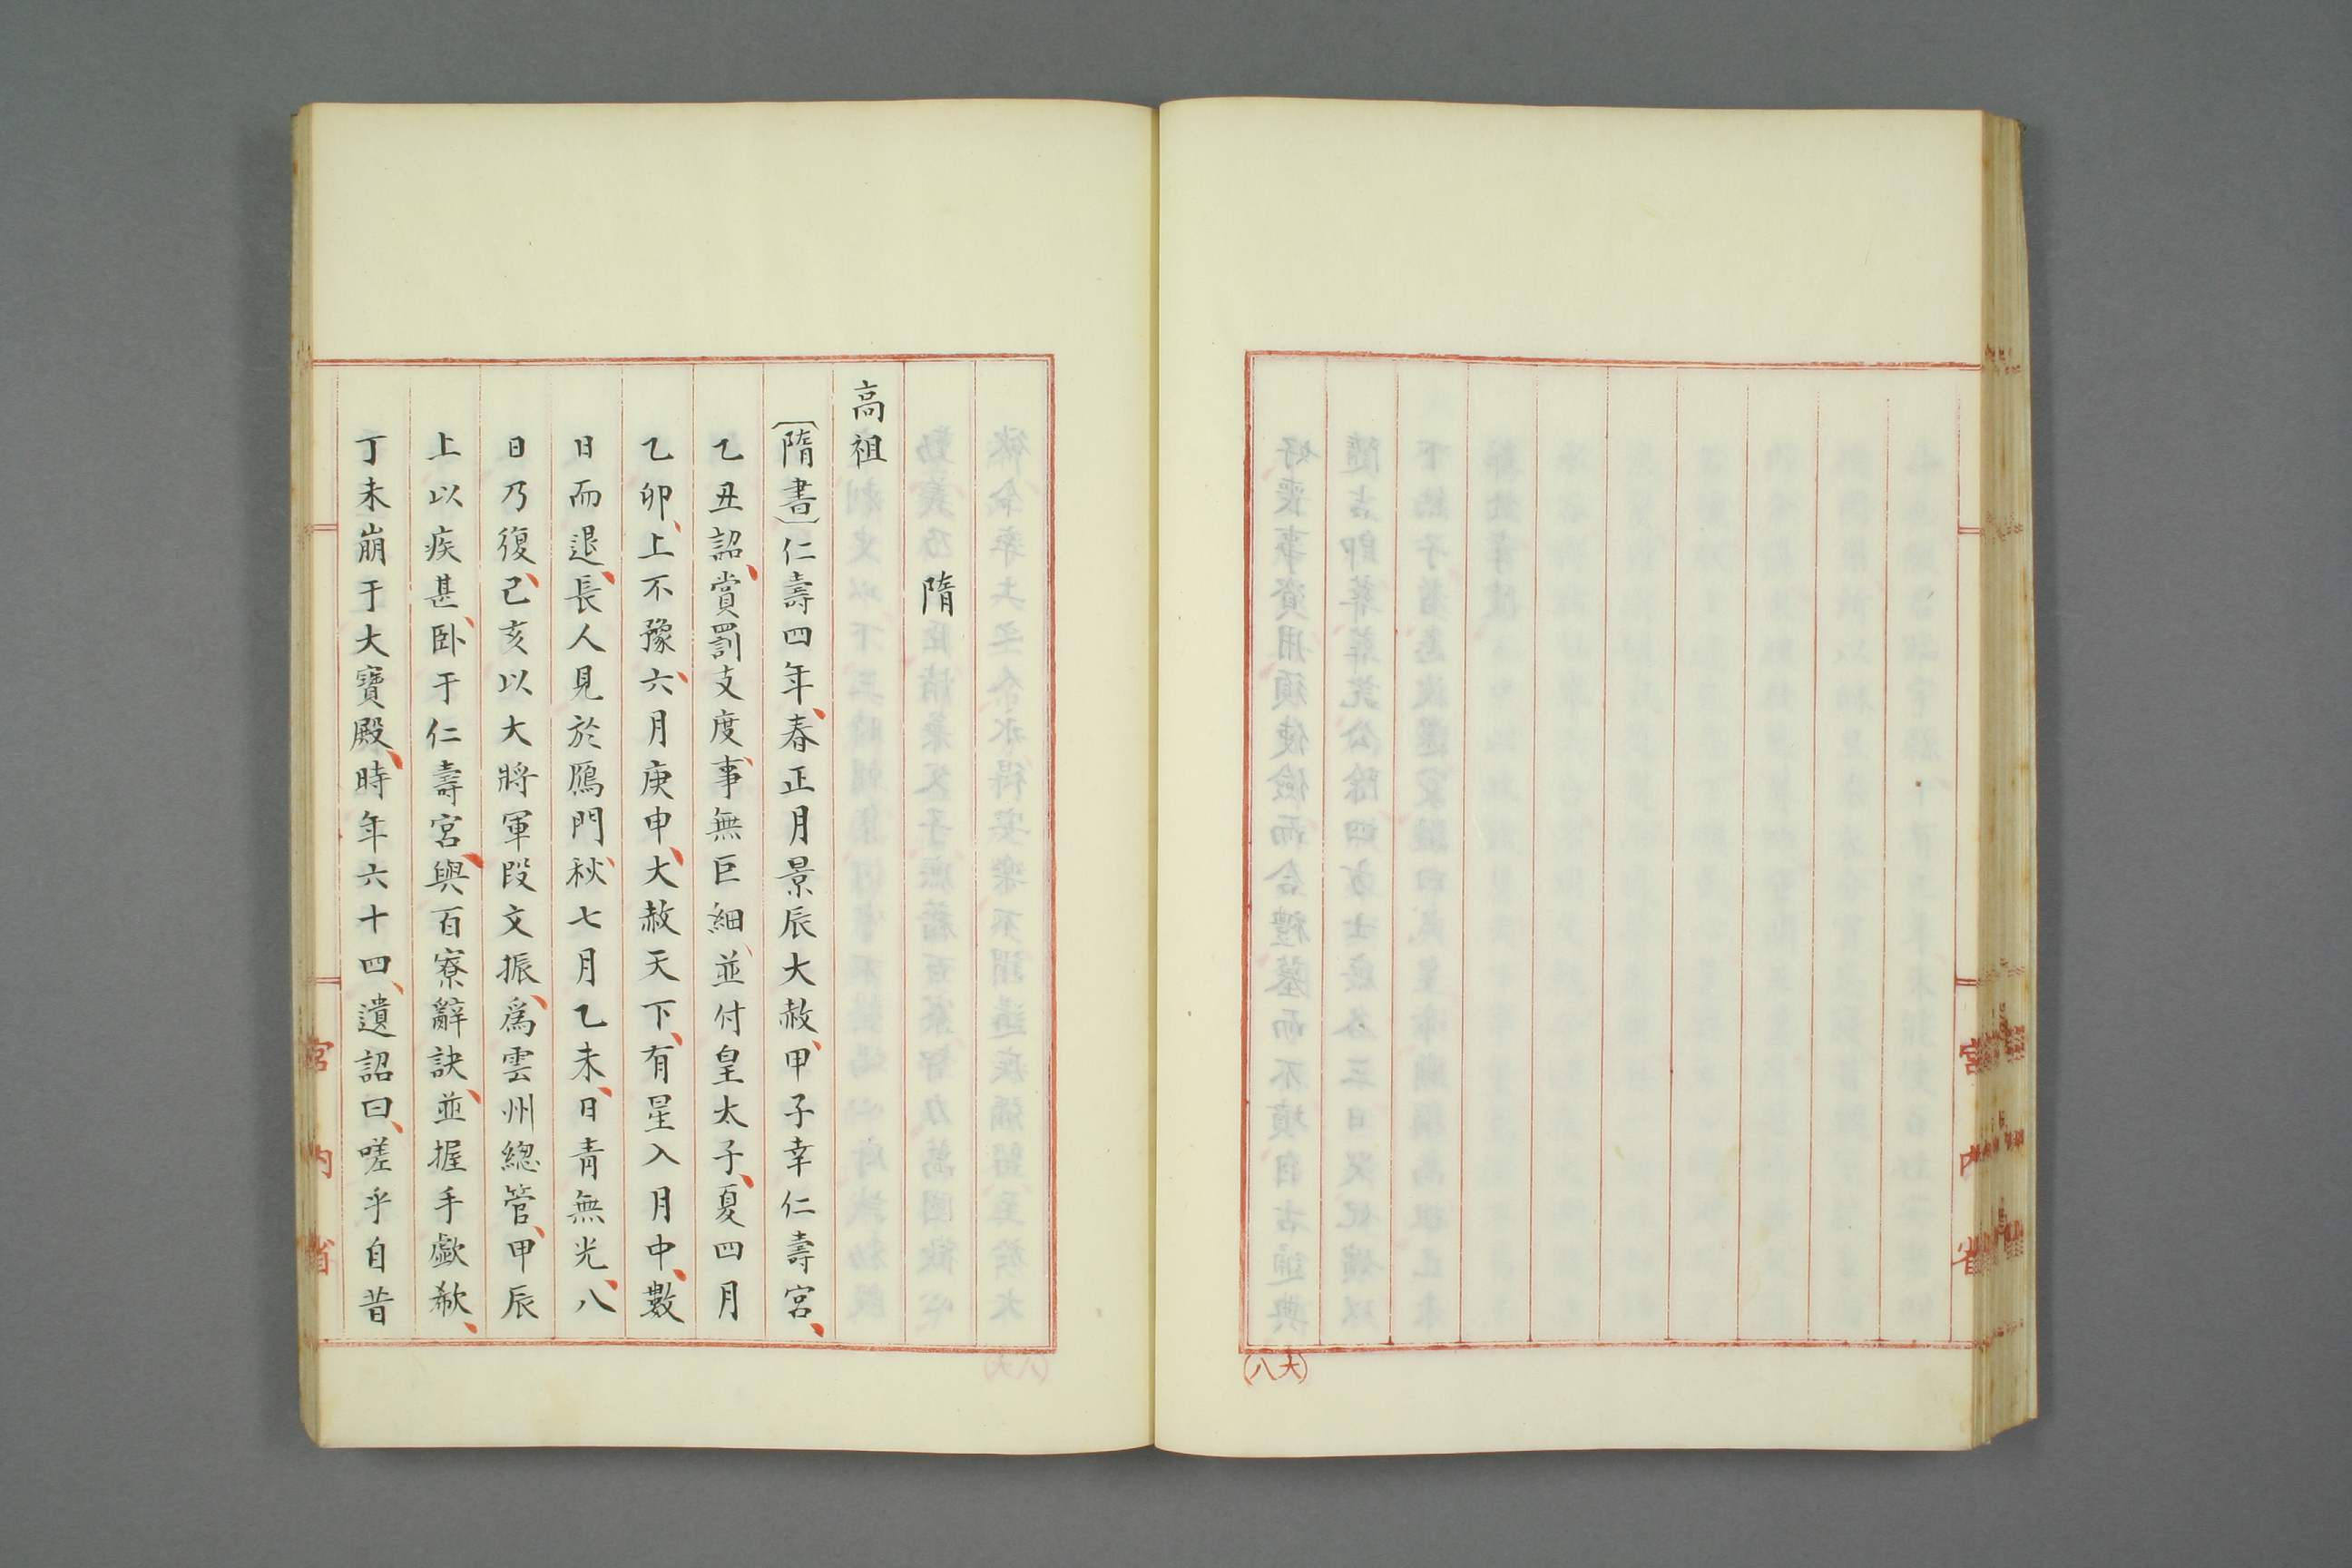 宮内省
(大八)
隋
高祖
〔隋書〕仁壽四年、春正月景辰大赦、甲子幸仁壽宮、
乙丑詔、賞罰支度、事無巨細、並付皇太子、夏四月
乙卯、上不豫、六月庚申、大赦天下、有星入月中、數
日而退、長人見於鴈門、秋七月乙未、日青無光、八
日乃復、己亥以大將軍段文振、爲雲州總管、甲辰
上以疾甚、臥于仁壽宮、與百寮辭訣、並握手歔欷、
丁未崩于大寶殿、時年六十四、遺詔曰、嗟乎自昔
宮内省